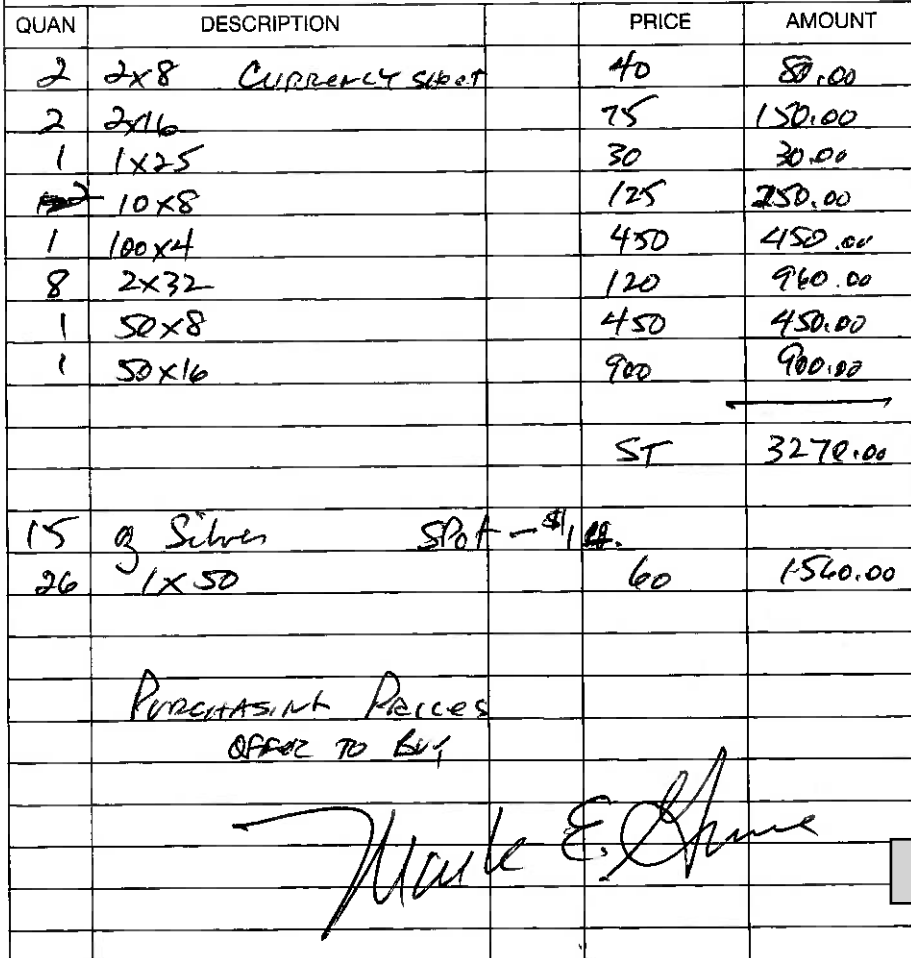 QUAN DESCRIPTION PRICE AMOUNT
2 2x8 CURRENCY SHEET 40 80.00
2 2x16 75 150.00
1 1x25 30 30.00
2 10x8 125 250.00
1 100x4 450 450.00
8 2x32 120 960.00
1 50x8 450 450.00
1 50x16 900 900.00
ST 3270.00
15 oz Silver SPOT - $1
26 1x50 60 1560.00
PURCHASING PRICES
OFFER TO BUY
Mark E.